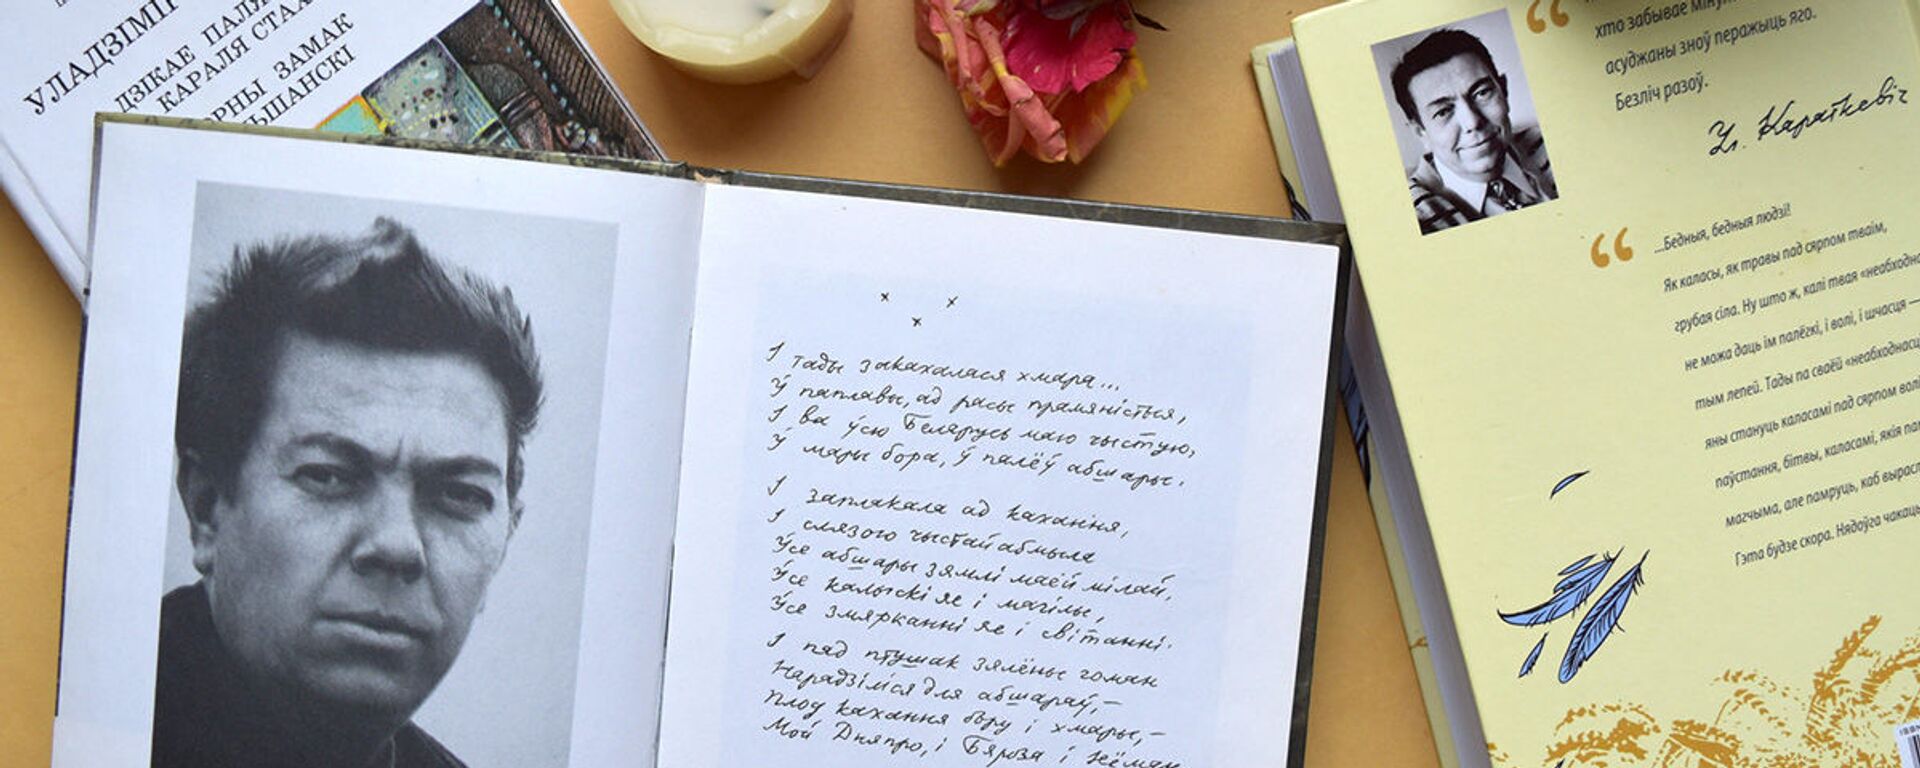 УЛАДЗІМІР
ДЗІКАЕ ПАЛЯ
КАРАЛЯ СТАХ
ОРНЫ ЗАМАК
ЬШАНСКІ
І тады закахалася хмара...
Ў паплавы, ад расы прамяністыя,
І ва ўсю Беларусь маю чыстую,
Ў мары бора, ў палёў абшары.
І заплакала ад кахання,
І слязою чыстай абмыла
Ўсе абшары зямлі маёй мілай,
Ўсе калыскі яе і магілы,
Ўсе змярканні яе і світанні.
І пад птушак зялёны гоман
Нарадзіліся для абшараў,—
Плод кахання бору і хмары,—
Мой Дняпро, і Бяроза і Нёман
хто забывае міну
асуджаны зноў перажыць яго.
Безліч разоў.
Ул. Караткевіч
“
“
...Бедныя, бедныя людзі!
Як каласы, як травы пад сярпом тваім,
грубая сіла. Ну што ж, калі твая «неабходна
не можа даць ім палёгкі, і волі, і шчасця —
тым лепей. Тады па сваёй «неабходнасц
яны стануць каласамі пад сярпом волі
паўстання, бітвы, каласамі, якія па
магчыма, але памруць, каб вырас
Гэта будзе скора. Нядоўга чакаць